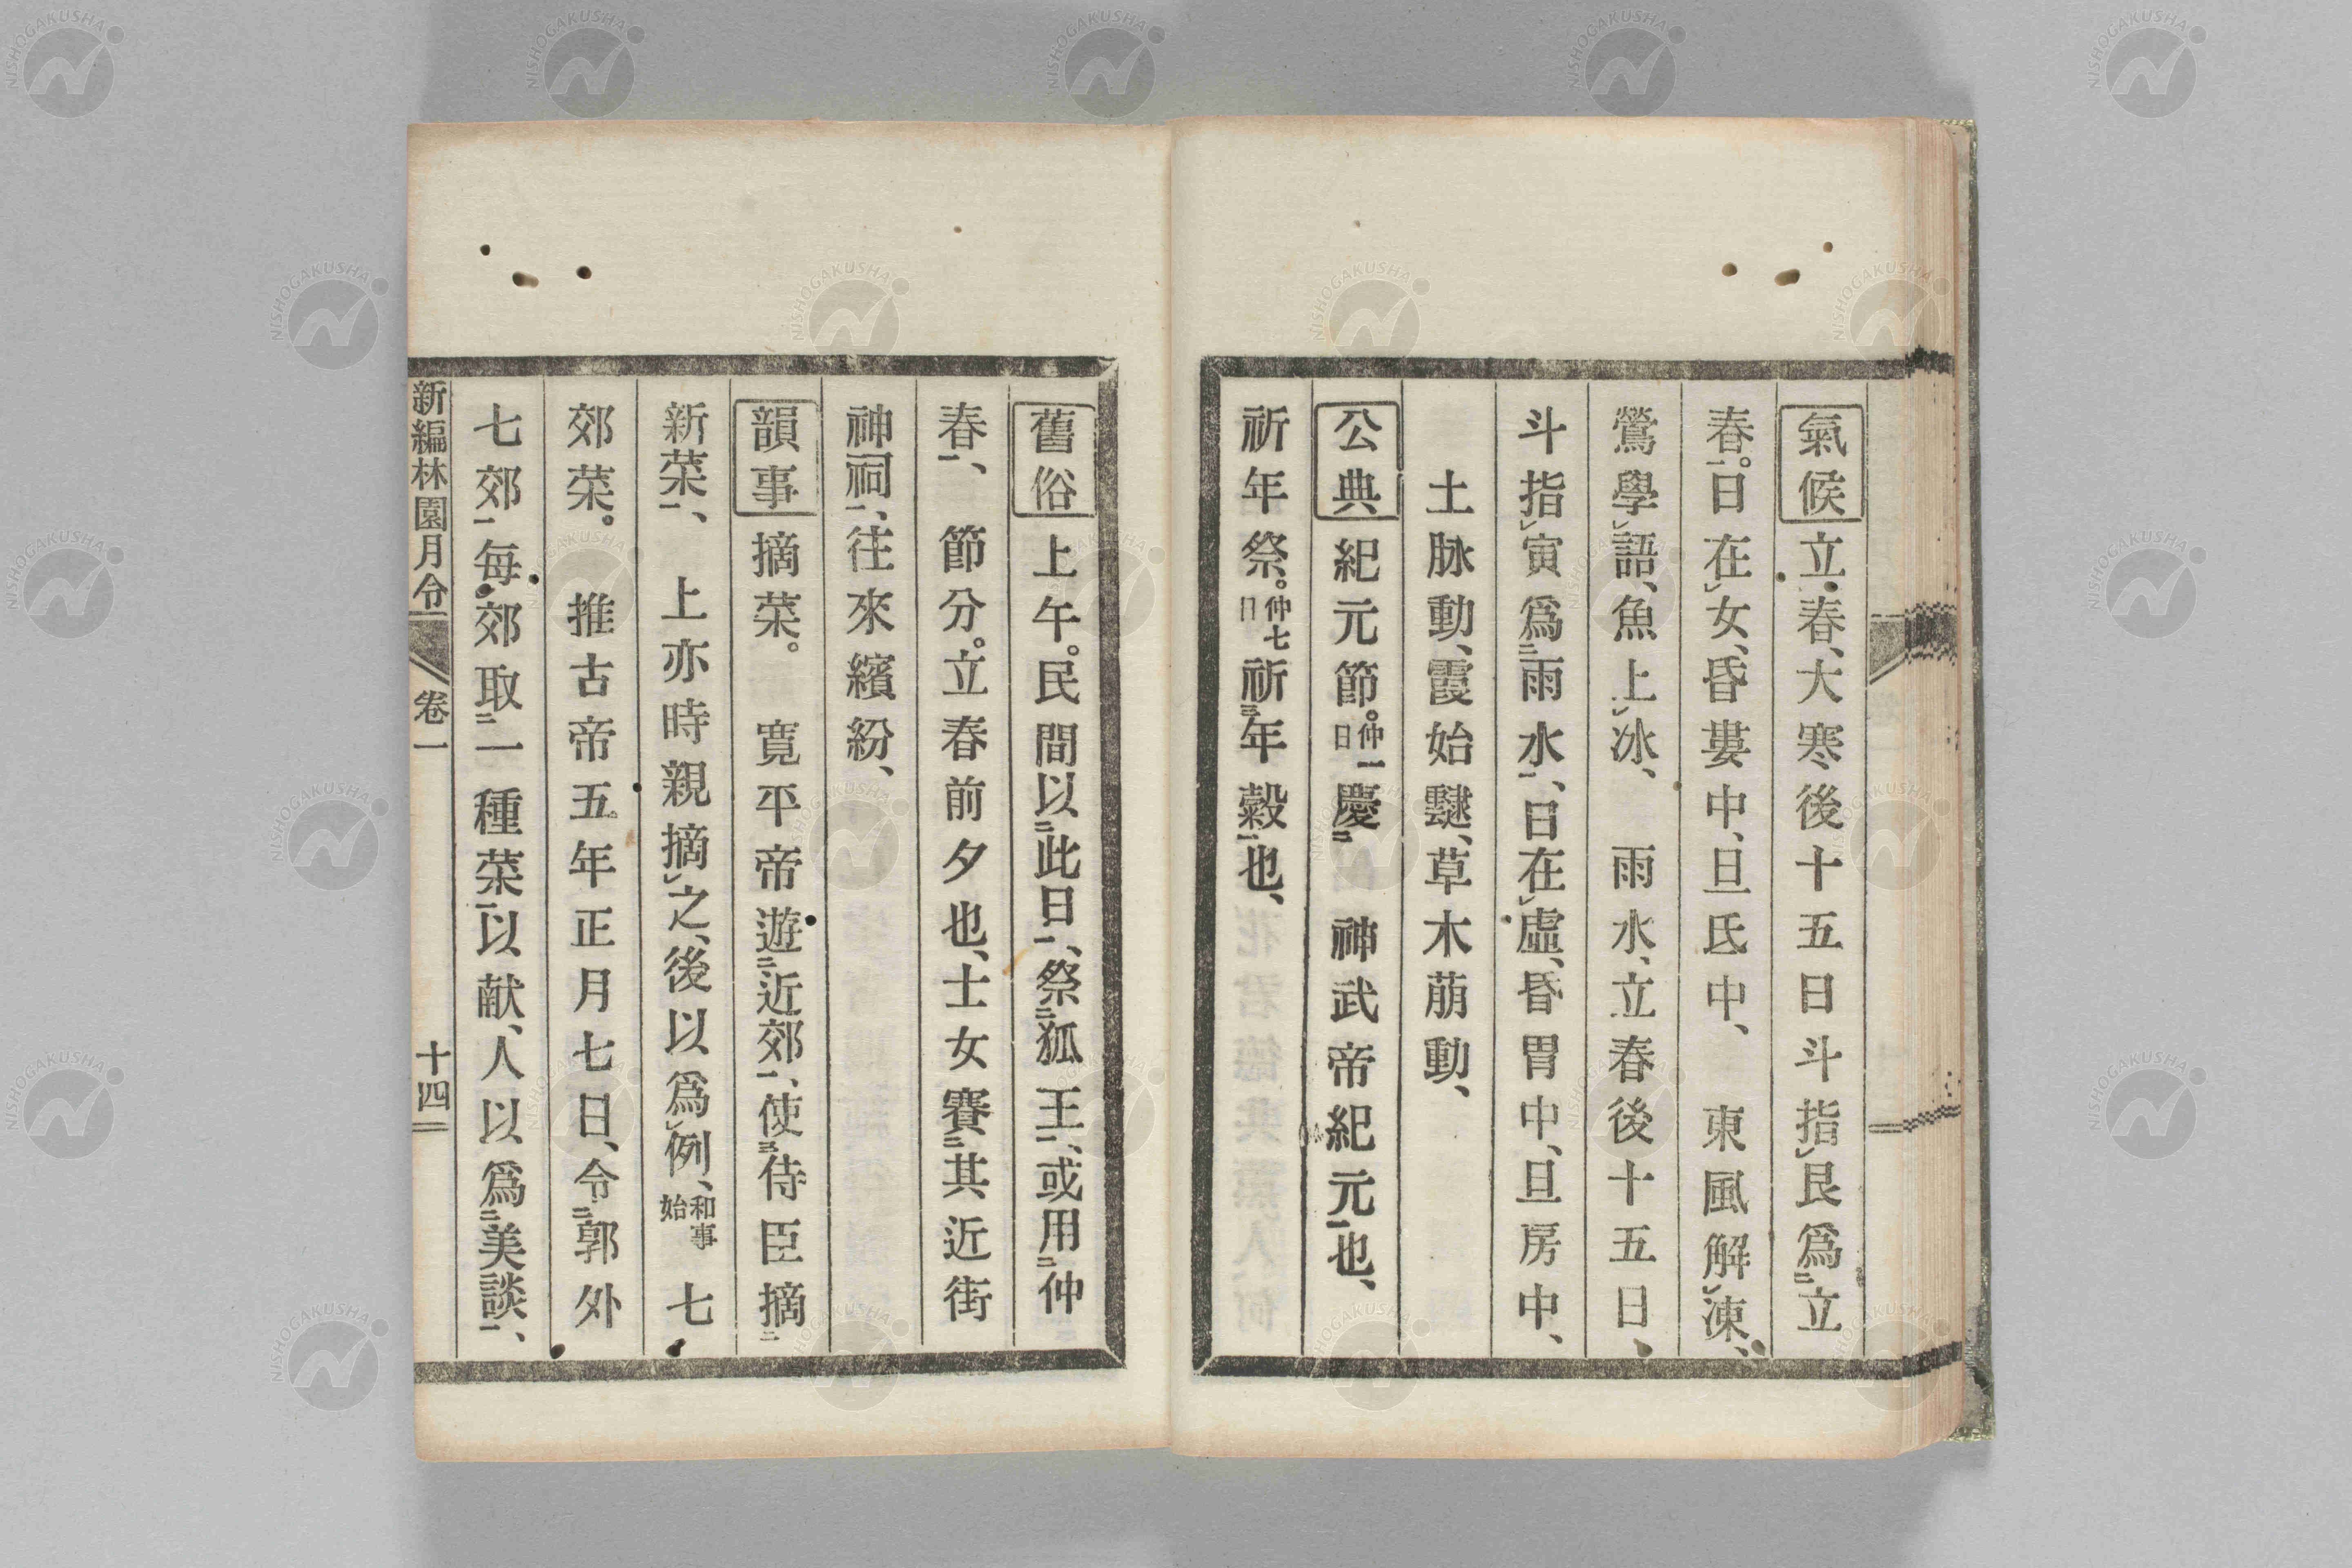 氣候立春、大寒後十五日斗指㆑艮爲㆓立
春㆒。日在㆑女、昏婁中、旦氐中、　東風解㆑凍、
鶯學㆑語、魚上㆑冰、　雨水、立春後十五日、
斗指㆑寅爲㆓雨水㆒、日在㆑虛、昏胃中、旦房中、
土脉動、霞始靆、草木萠動、
公典紀元節。仲一日慶㆓　神武帝紀元㆒也、
祈年祭。仲七日祈㆓年穀㆒也、
舊俗上午。民間以㆓此日㆒、祭㆓狐王㆒、或用㆓仲
春㆒、　節分。立春前夕也、士女賽㆓其近街
神祠㆒、往來繽紛、
韻事摘菜。　寬平帝遊㆓近郊㆒、使㆔侍臣摘㆓
新菜㆒、　上亦時親摘㆑之、後以爲㆑例、和事始　七
郊菜。　推古帝五年正月七日、令㆘郭外
七郊㆒每㆑郊取㆓一種菜㆒以獻、人以爲㆓美談㆒、
新編林園月令　卷一　十四
NISHOGAKUSHA